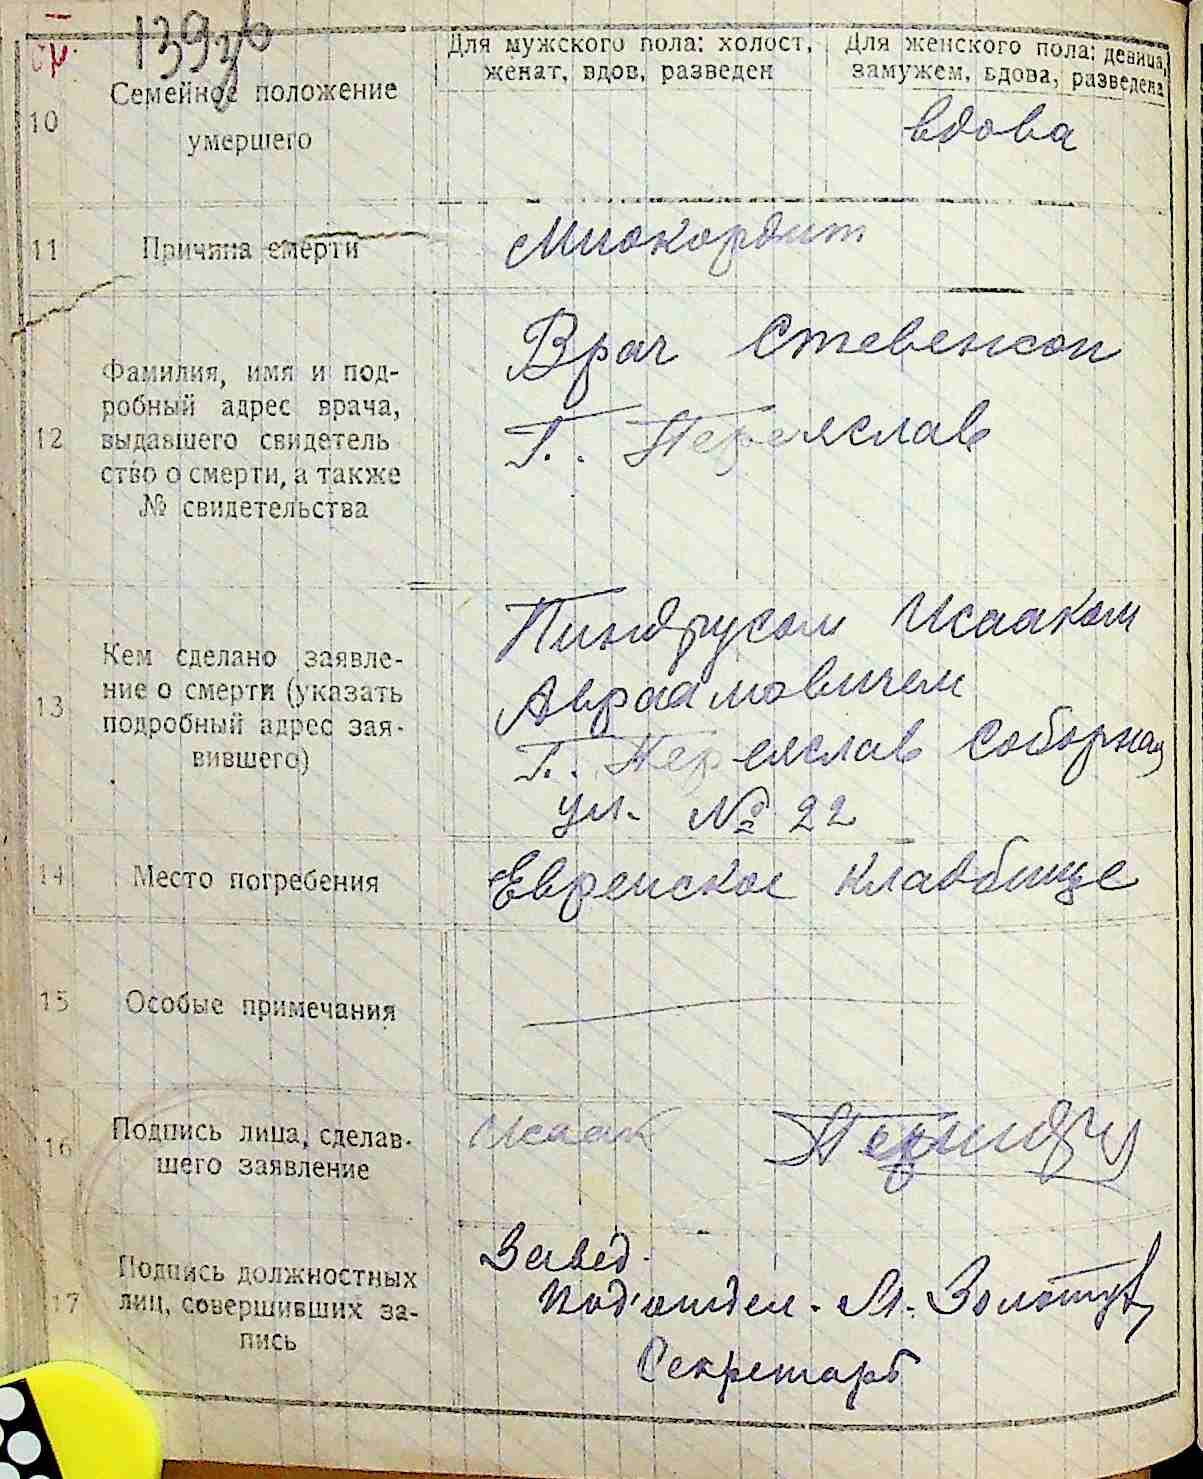 139зв
Для мужского пола: холост,
женат, вдов, разведен
Для женского пола: девица,
замужем, вдова, разведена
10
Семейное положение
умершего
вдова
11
Причина смерти
Миокордит
12
Фамилия, имя и под-
робный адрес врача,
выдавшего свидетель
ство о смерти, а также
№ свидетельства
Врач Стевенсон
Г. Переяслав
13
Кем сделано заявле-
ние о смерти (указать
подробный адрес зая-
вившего)
Пиндрусом Исааком
Авраамовичем
Г. Переяслав Соборная
ул. № 22
14
Место погребения
Евреиское кладбище
15
Особые примечания
16
Подпись лица, сделав-
шего заявление
Исаак
17
Подпись должностных
лиц, совершивших за-
пись
Завед.
Под'отдел. М.
Секретарь